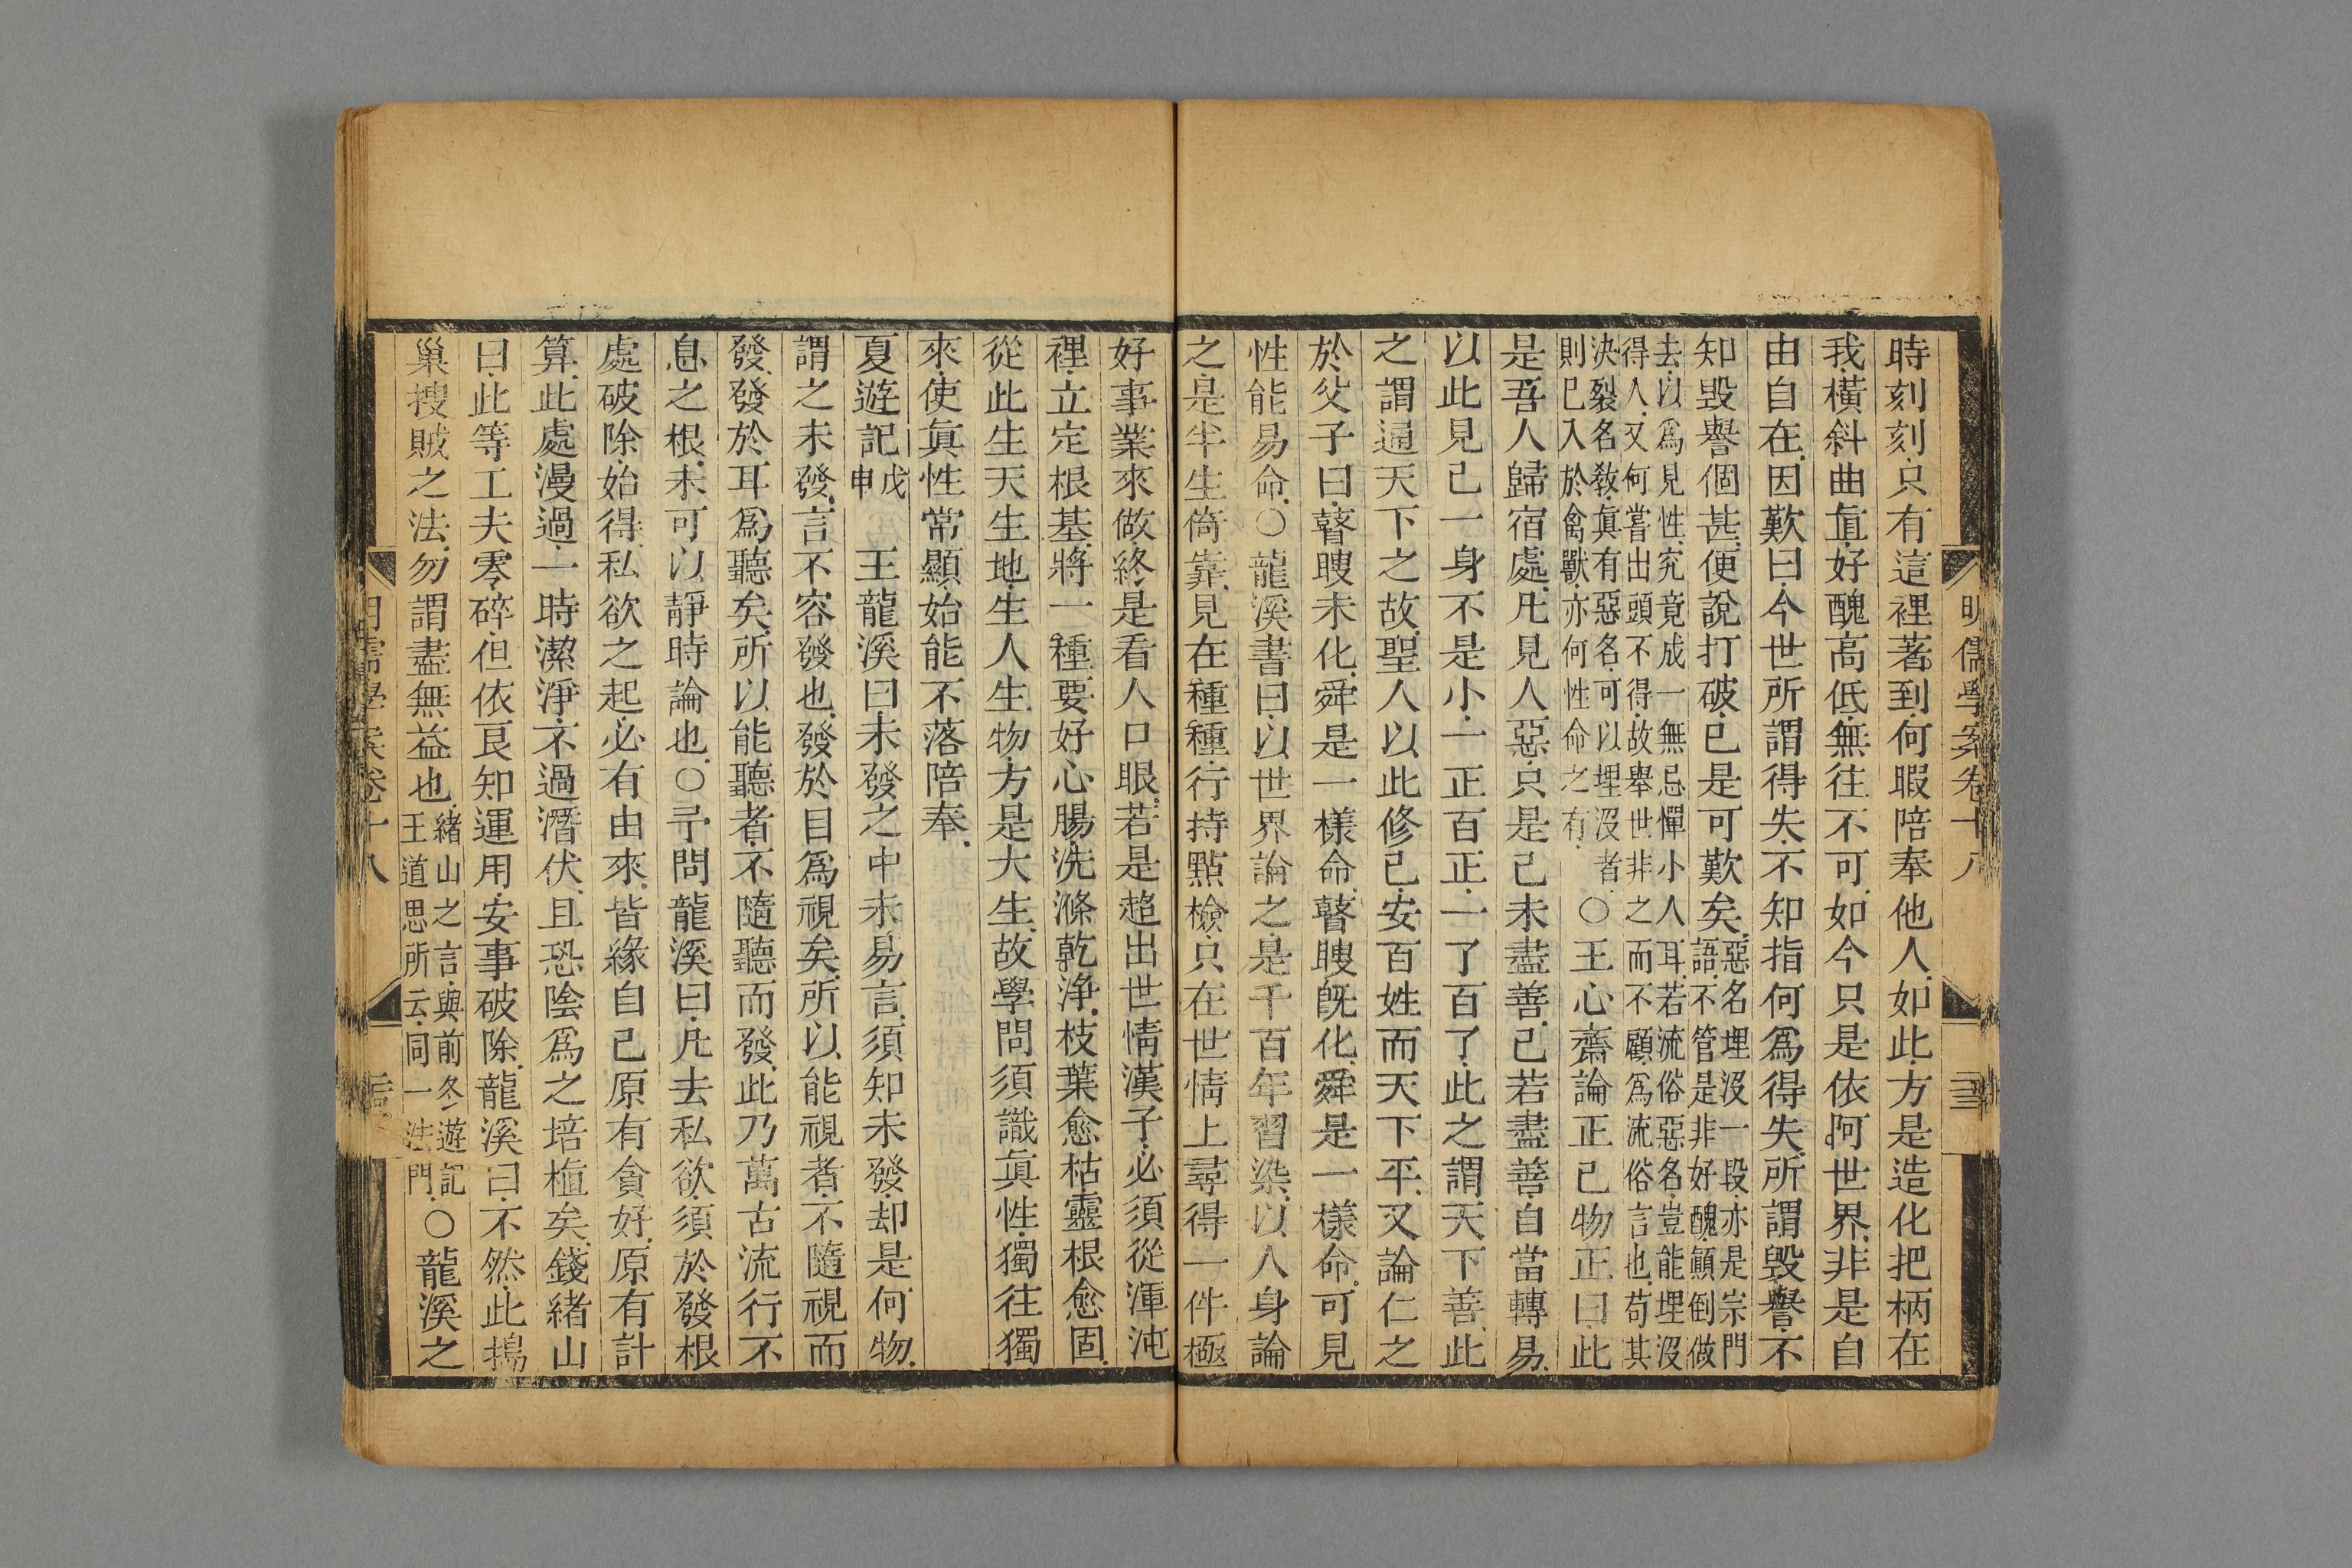 明儒學案卷十八
時刻刻只有這裡著到何暇陪奉他人如此方是造化把柄在
我橫斜曲直好醜高低無往不可如今只是依阿世界非是自
由自在因歎曰今世所謂得失不知指何爲得失所謂毀譽不
知毀譽個甚便說打破已是可歎矣
惡名埋沒一段亦是宗門
語不管是非好醜顚倒做
去以爲見性究竟成一無忌憚小人耳若流俗惡名豈能埋沒
得人又何嘗出頭不得故舉世非之而不顧爲流俗言也苟其
決裂名敎眞有惡名可以埋沒者
則已入於禽獸亦何性命之有
○王心齋論正己物正曰此
是吾人歸宿處凡見人惡只是己未盡善己若盡善自當轉易
以此見己一身不是小一正百正一了百了此之謂天下善此
之謂通天下之故聖人以此修己安百姓而天下平又論仁之
於父子曰瞽瞍未化舜是一樣命瞽瞍旣化舜是一樣命可見
性能易命○龍溪書曰以世界論之是千百年習染以人身論
之是半生倚靠見在種種行持點檢只在世情上尋得一件極
好事業來做終是看人口眼若是超出世情漢子必須從渾沌
裡立定根基將一種要好心腸洗滌乾淨枝葉愈枯靈根愈固
從此生天生地生人生物方是大生故學問須識眞性獨往獨
來使眞性常顯始能不落陪奉
夏遊記戊申 王龍溪曰未發之中未易言須知未發却是何物
謂之未發言不容發也發於目爲視矣所以能視者不隨視而
發發於耳爲聽矣所以能聽者不隨聽而發此乃萬古流行不
息之根未可以靜時論也○予問龍溪曰凡去私欲須於發根
處破除始得私欲之起必有由來皆緣自己原有貪好原有計
算此處漫過一時潔淨不過潛伏且恐陰爲之培植矣錢緒山
曰此等工夫零碎但依良知運用安事破除龍溪曰不然此搗
巢搜賊之法勿謂盡無益也
緒山之言與前冬遊記
王道思所云同一法門
○龍溪之
明儒學案卷十八